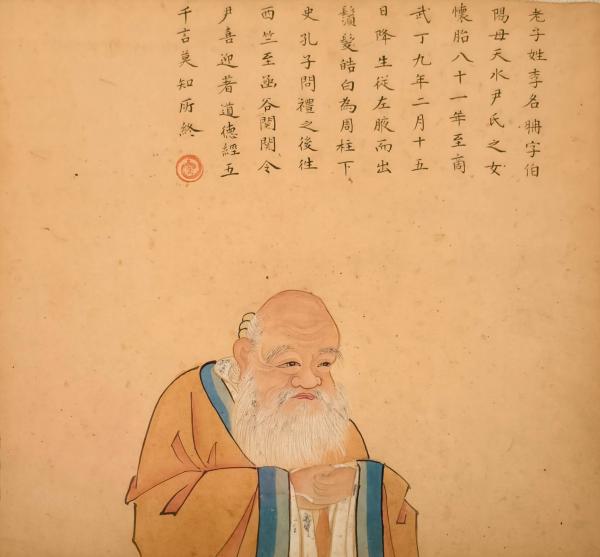 老子姓李名聃字伯
陽母天水尹氏之女
懷胎八十一年至商
武丁九年二月十五
日降生從左腋而出
鬚髮皓白為周柱下
史孔子問禮之後往
西竺至函谷関関令
尹喜迎著道德經五
千言莫知所終